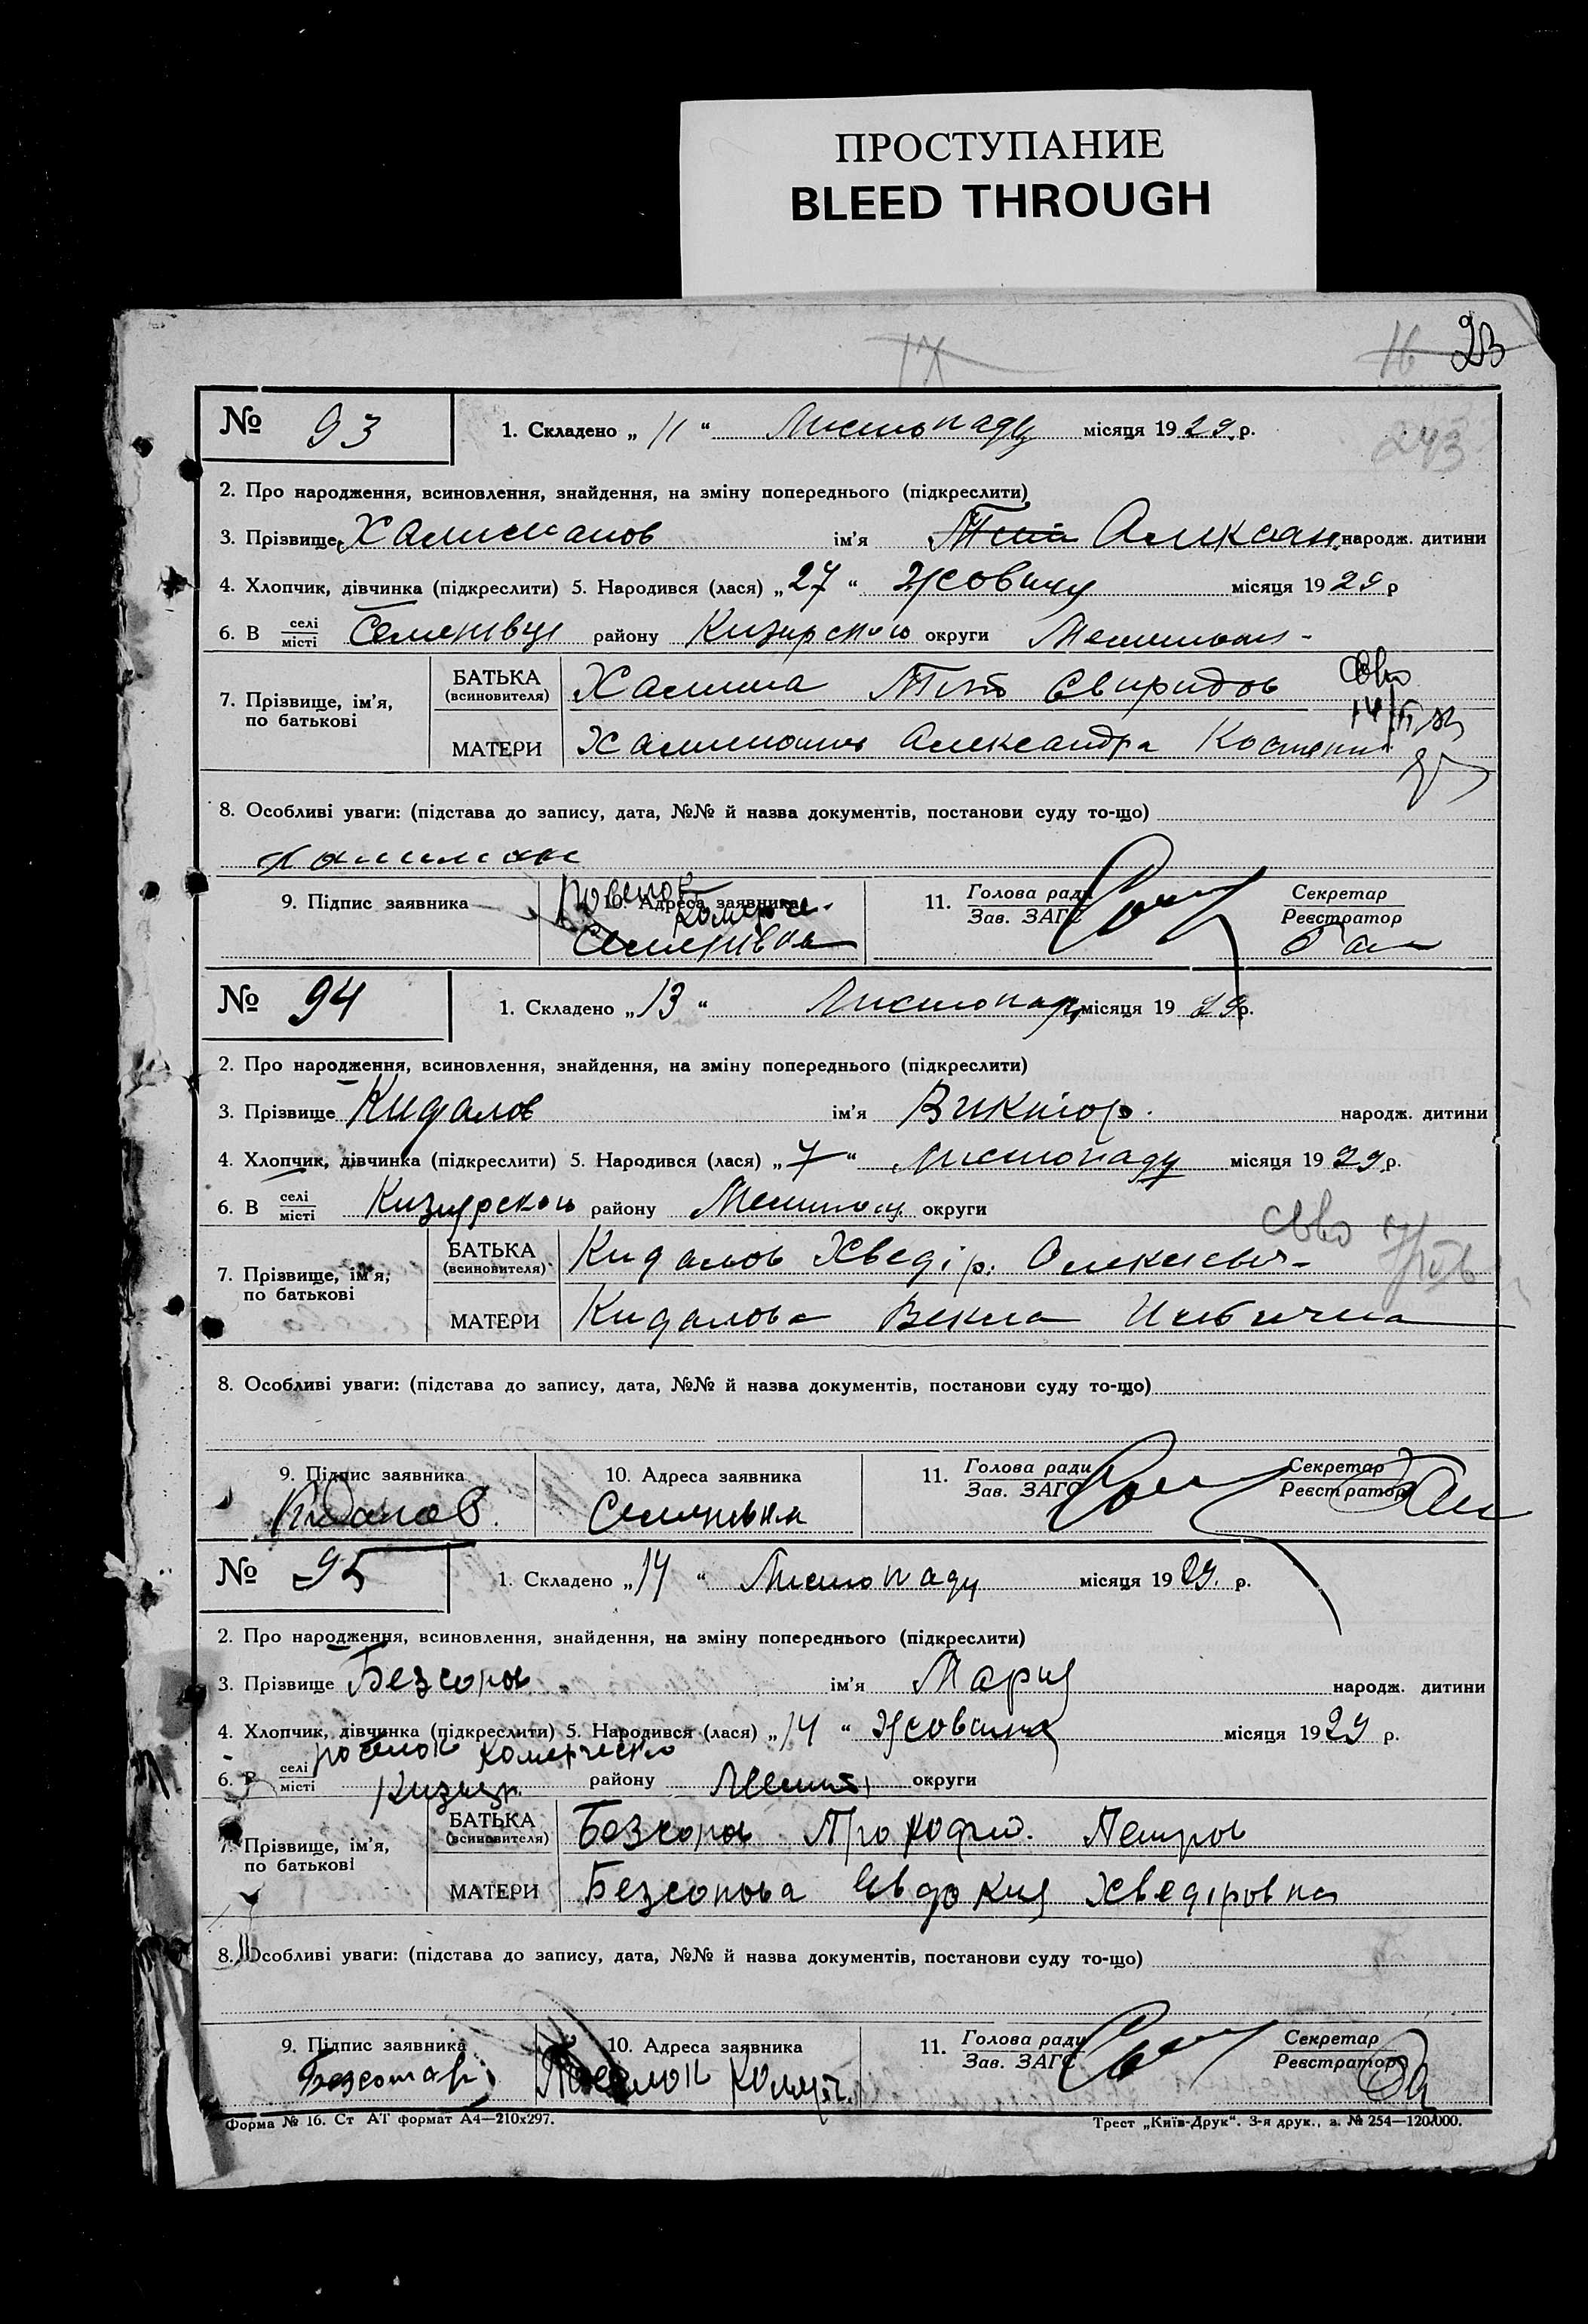 ПРОСТУПАНИЕ
BLEED THROUGH
IX 16 23
№ 93 1. Складено „ 11 “ Листопаду місяця 19 29 р.
243
2. Про народження, всиновлення, знайдення, на зміну попереднього (підкреслити)
3. Прізвище ім'я Алексан. народж. дитини
4. Хлопчик, дівчинка (підкреслити) 5. Народився (лася) „ 27 “ Жовтну місяця 19 29 р
6. В селі/місті Семенівці району Кизирского округи
7. Прізвище, ім'я, по батькові БАТЬКА (всиновителя) Тит Свиридов
МАТЕРИ Александра
8. Особливі уваги: (підстава до запису, дата, №№ й назва документів, постанови суду то-що)
9. Підпис заявника 10. Адреса заявника 11. Голова ради/Зав. ЗАГС Секретар/Реєстратор
Семенівка
№ 94 1. Складено „ 13 “ Листопад місяця 19 29 р.
2. Про народження, всиновлення, знайдення, на зміну попереднього (підкреслити)
3. Прізвище Кидалов ім'я Виктор. народж. дитини
4. Хлопчик, дівчинка (підкреслити) 5. Народився (лася) „ 7 “ Листопаду місяця 19 29 р.
6. В селі/місті Кизиярского району округи
7. Прізвище, ім'я, по батькові БАТЬКА (всиновителя) Кидалов Хведір. Олексієвич
МАТЕРИ Кидалова Векла
8. Особливі уваги: (підстава до запису, дата, №№ й назва документів, постанови суду то-що)
9. Підпис заявника 10. Адреса заявника 11. Голова ради/Зав. ЗАГС Секретар/Реєстратор
Кидалов. Семенивка
№ 95 1. Складено „ 14 “ Листопаду місяця 19 29. р.
2. Про народження, всиновлення, знайдення, на зміну попереднього (підкреслити)
3. Прізвище Безсонов ім'я Мария народж. дитини
4. Хлопчик, дівчинка (підкреслити) 5. Народився (лася) „ 14 “ місяця 19 29 р.
поселок Комерческо
6. В селі/місті Кизияр. району Меліт. округи
7. Прізвище, ім'я, по батькові БАТЬКА (всиновителя) Безсонов Прокофий. Петров
МАТЕРИ Безсонова Євдокия Хведіровна
8. Особливі уваги: (підстава до запису, дата, №№ й назва документів, постанови суду то-що)
9. Підпис заявника 10. Адреса заявника 11. Голова ради/Зав. ЗАГС Секретар/Реєстратор
Поселок Комерч.
Форма № 16. Ст АТ формат А4—210х297. Трест „Київ-Друк“. 3-я друк., з. № 254—120.000.